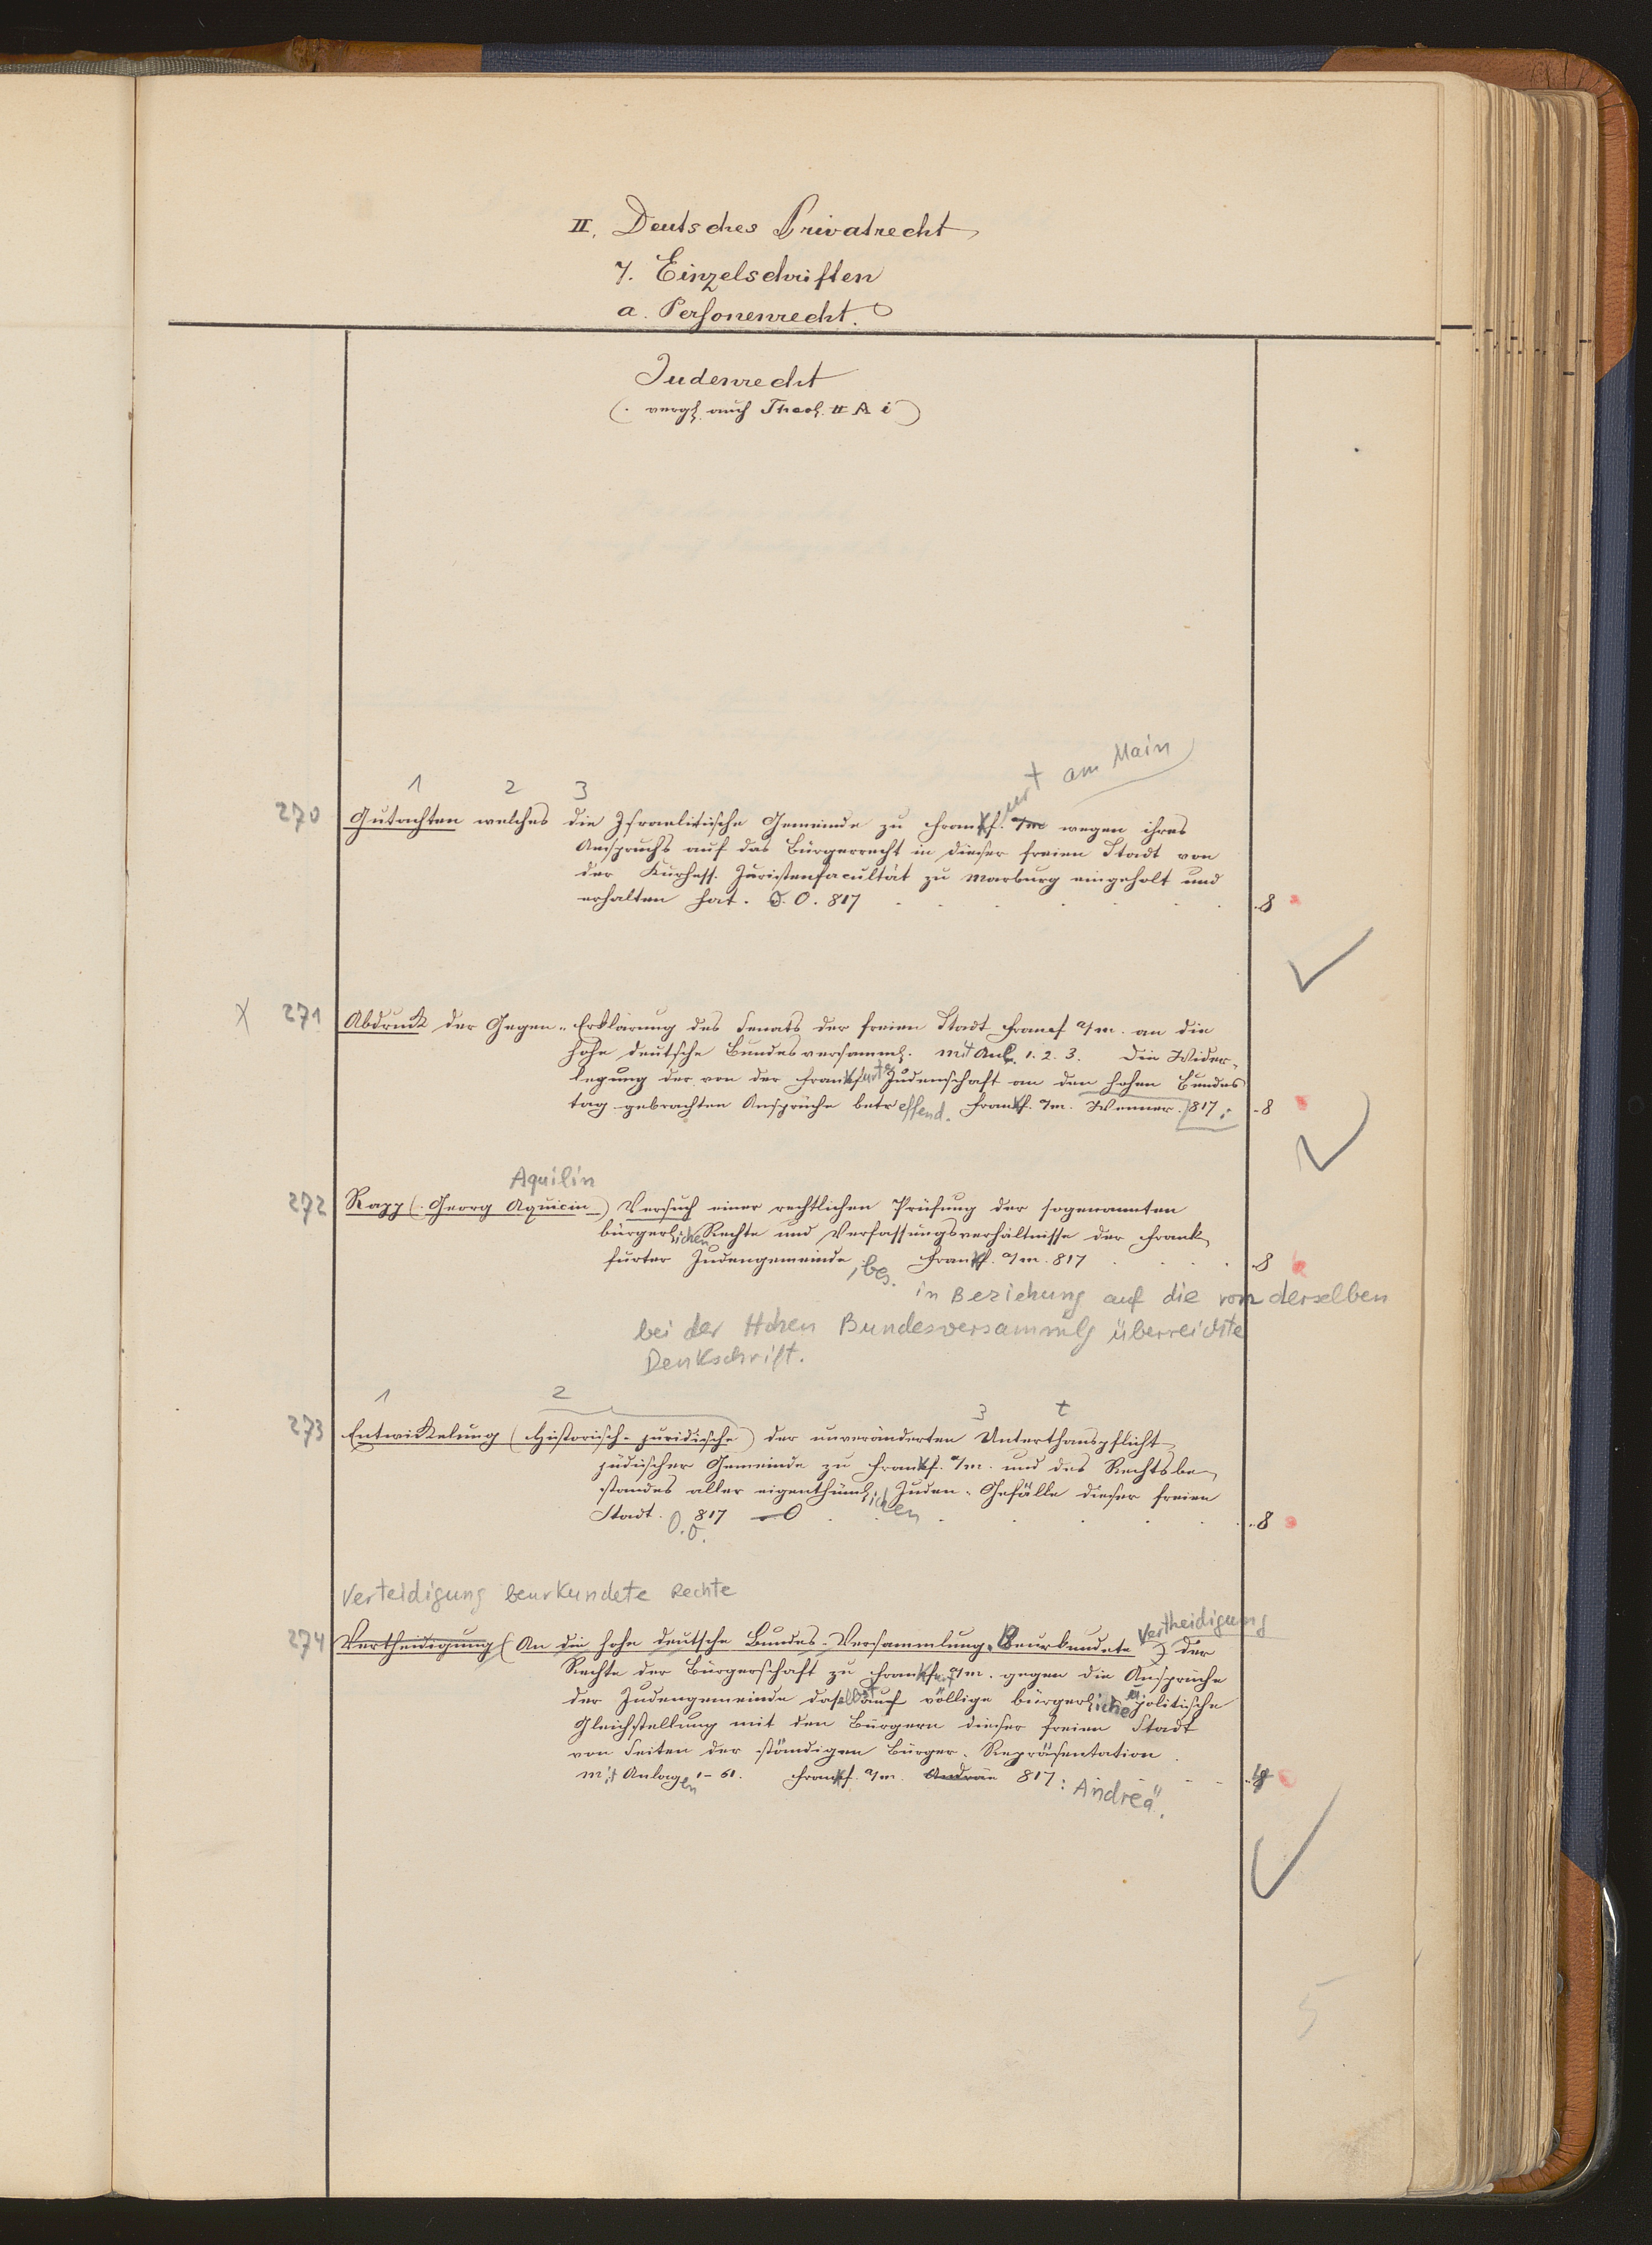 II. Deutsches Privatrecht
7. Einzelschriften
a. Personenrecht.
Judenrecht
(. vergl. auch Theol. II A i)
am Main
1 2 3 urt
270 Gutachten welches die Israelitische Gemeinde zu Frankf. a/m wegen ihres
Anspruchs auf das Bürgerrecht in dieser freien Stadt von
der Kurhess. Juristenfacultät zu Marburg eingeholt und
erhalten hat. O. O. 817 . 8
X 271 Abdruck der Gegen-Erklärung des Senats der freien Stadt Francf a/m. an die
hohe deutsche Bundesversamml. mit Anl. 1. 2. 3. Die Wider-
legung der von der Frankfurter Judenschaft an den hohen Bundes
tag gebrachten Ansprüche betreffend. Frankf. a/m. Wenner. 817. . 8
Aquilin
272 Rapp (. Georg Aquicin) Versuch einer rechtlichen Prüfung der sogenannten
bürgerlichen Rechte und Verfassungsverhältnisse der Frank-
furter Judengemeinde, bes. Frankf. a/m. 817 . 8
in Beziehung auf die von derselben
bei der Hohen Bundesversammlg überreichte
Denkschrift.
1 2 3 t
273 Entwickelung (Historisch-juridische) der unveränderten Unterthanspflicht
jüdischer Gemeinde zu Frankf. a/m. und des Rechtsbe-
standes aller eigenthümlichen Juden-Gefälle dieser freien
Stadt. 817 . O . 8
O. O.
Verteidigung beurkundete Rechte
Vertheidigung
274 Vertheidigung (An die hohe deutsche Bundes-Versammlung. Beurkundete) der
Rechte der Bürgerschaft zu Frankfurt a/m. gegen die Ansprüche
der Judengemeinde daselbst auf völlige bürgerliche u politische
Gleichstellung mit den Bürgern dieser freien Stadt
von Seiten der ständigen Bürger-Repräsentation
mit Anlagen 1-61. Frankf. a/m. Andreä 817: Andreä.
5